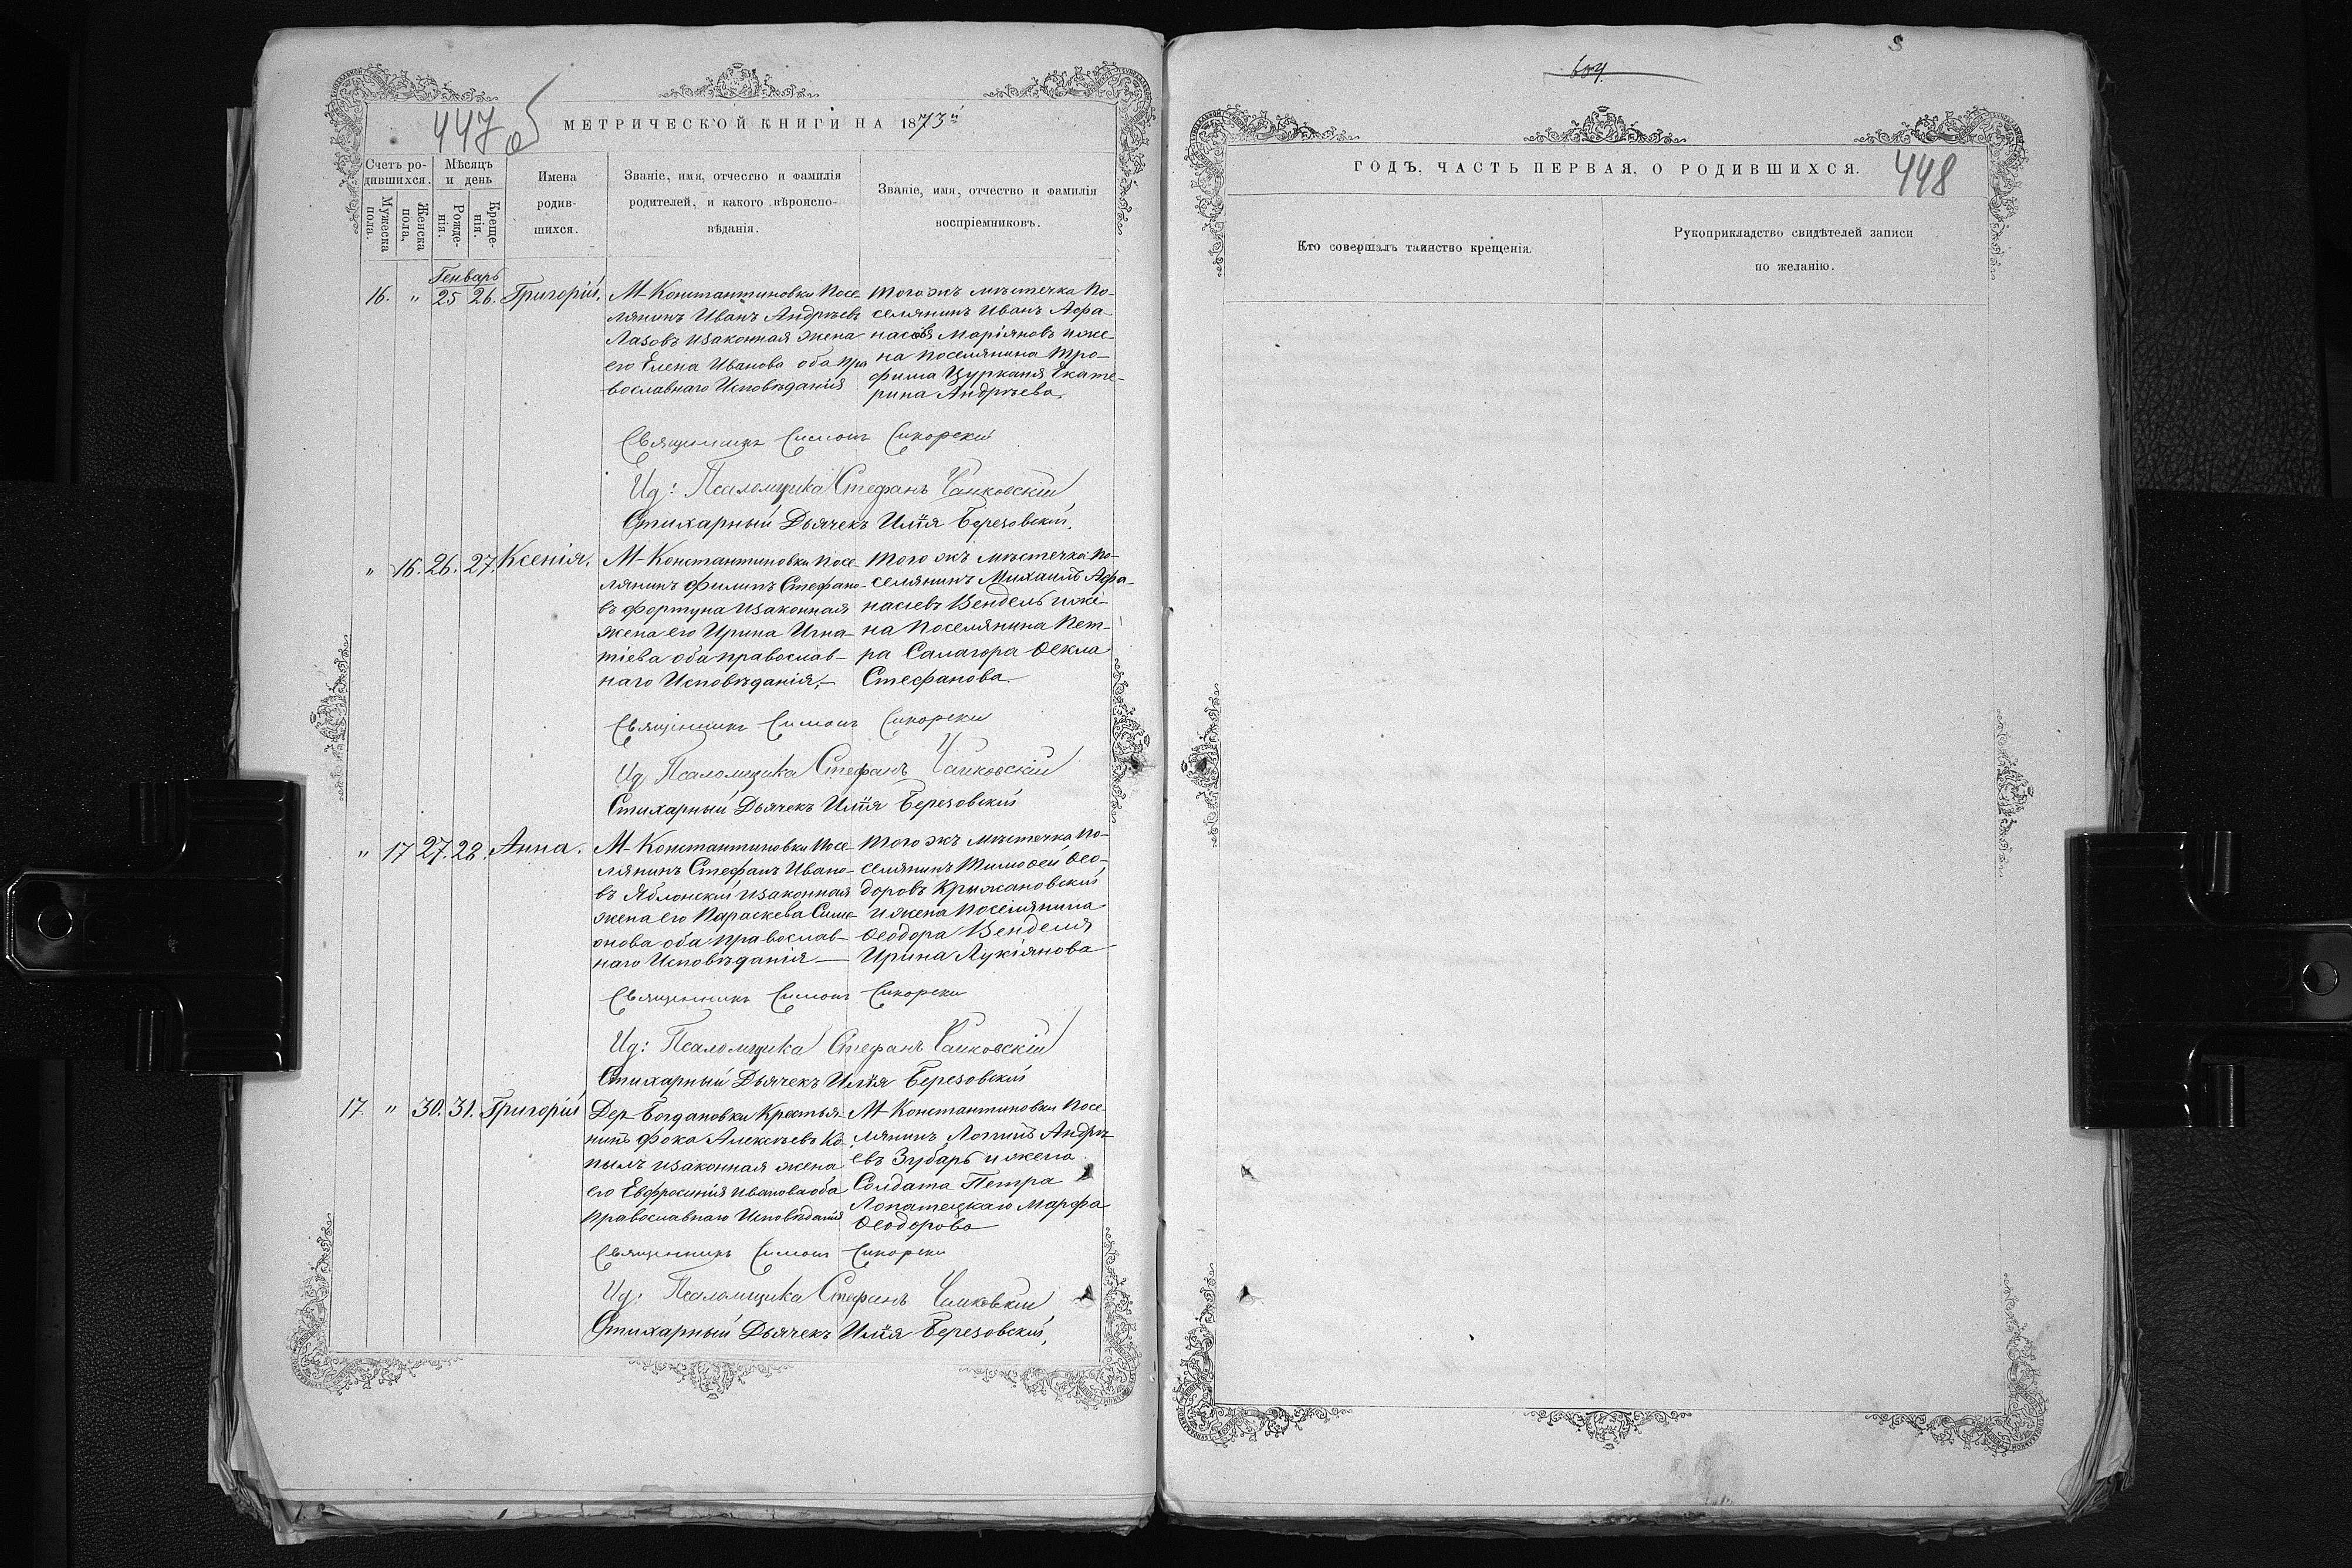 447 об
МЕТРИЧЕСКОЙ КНИГИ НА 1873й
Счетъ ро-
дившихся.
Мужеска
пола.
Женска
пола.
Мѣсяцъ
и день
Рожде-
нія.
Креще-
нія.
Имена
родив-
шихся.
Званіе, имя, отчество и фамилія
родителей, и какого вѣроиспо-
вѣданія.
Званіе, имя, отчество и фамилія
воспріемниковъ.
Генварь
16. „ 25 26. Григорій.
М- Константиновки Посе-
лянинъ Иванъ Андрѣевъ
Лазовъ изаконная жена
его Елена Иванова оба пра
вославнаго Исповѣданія
того жъ мѣстечка по-
селянинъ Иванъ Афа-
насіевъ Маріяновъ иже-
на поселянина Тро-
фима Цурканя Екате-
рина Андрѣева.
Священникъ Симонъ Сикорскій
Ид: Псаломщика Стефанъ Чайковскій
Стихарный Дьячекъ Илія Березовскій.
„ 16. 26. 27. Ксенія.
М- Константиновки Посе-
лянинъ Филипъ Стефано-
въ Фортуна изаконная
жена его Ирина Игна-
тіева оба православ-
наго Исповѣданія.-
того жъ мѣстечка по-
селянинъ Михаилъ Афа-
насіевъ Вендель иже-
на Поселянина Пет-
ра Саламора Ѳекла
Стефанова.
Священникъ Симонъ Сикорскій
Ид Псаломщика Стефанъ Чайковскій
Стихарный Дьячекъ Илія Березовскій
„ 17 27. 28. Анна.
М- Константиновки Посе-
лянинъ Стефанъ Ивано-
въ Яблонскій изаконная
жена его Параскева Симе-
онова оба православ-
наго Исповѣданія
того жъ мѣстечка по-
селянинъ Тимоѳей Ѳео-
доровъ Крыжановскій
ижена поселянина
Ѳеодора Венделя
Ирина Лукіянова
Священникъ Симонъ Сикорскій
Ид: Псаломщика Стефанъ Чайковскій
Стихарный Дьячекъ Илія Березовскій
17. „ 30. 31. Григорій
Дер- Богдановки Крестья-
нинъ Фока Алексѣевъ Ко-
пылъ изаконная жена
его Евфросинія Иванова оба
православнаго Исповѣданія
М- Константиновки Посе-
лянинъ Логинъ Андрѣ-
евъ Зубарь и жена
Солдата Петра
Лопатецкаго Марфа
Ѳеодорова
Священникъ Симонъ Сикорскій
Ид: Псаломщика Стефанъ Чайковскій
Стихарный Дьячекъ Илія Березовскій,
604.
ГОДЪ, ЧАСТЬ ПЕРВАЯ, О РОДИВШИХСЯ.
448
Кто совершалъ таинство крещенія.
Рукоприкладство свидѣтелей записи
по желанію.